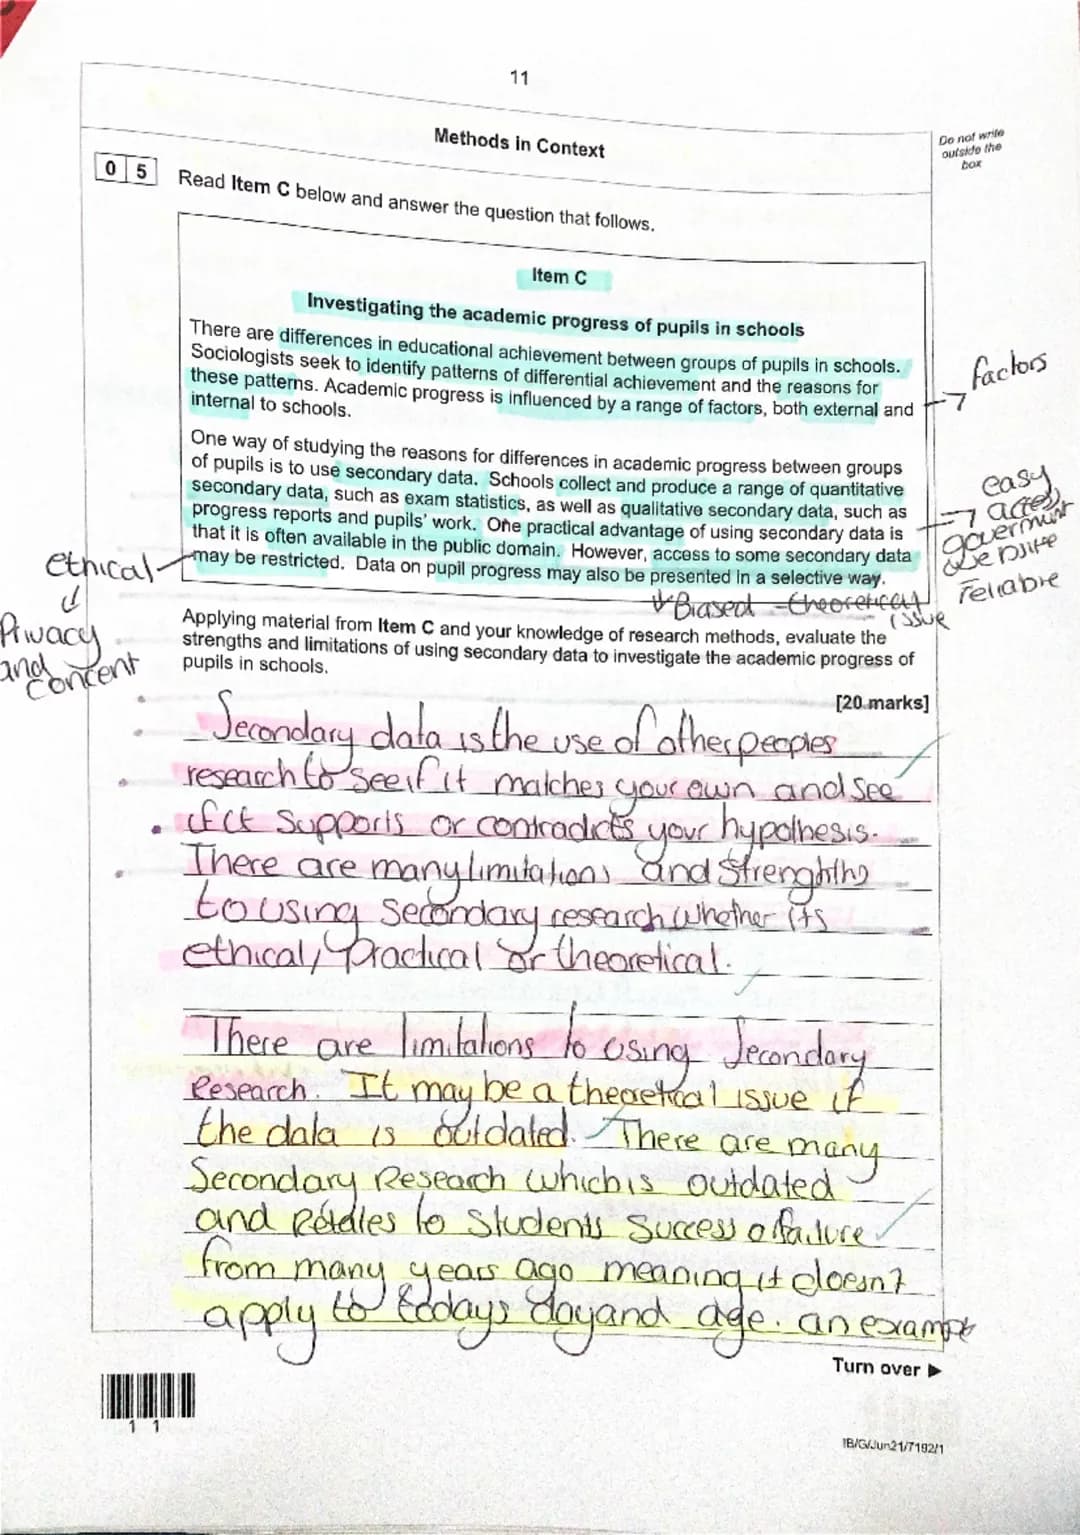 11
Methods in Context
Do not write
outside the
box
0 5 Read Item C below and answer the question that follows.
Item C
Investigating the academic progress of pupils in schools
There are differences in educational achievement between groups of pupils in schools.
Sociologists seek to identify patterns of differential achievement and the reasons for
these patterns. Academic progress is influenced by a range of factors, both external and
internal to schools.
factors
One way of studying the reasons for differences in academic progress between groups
of pupils is to use secondary data. Schools collect and produce a range of quantitative
secondary data, such as exam statistics, as well as qualitative secondary data, such as
progress reports and pupils' work. One practical advantage of using secondary data is
that it is often available in the public domain. However, access to some secondary data
may be restricted. Data on pupil progress may also be presented in a selective way.
easy
access
reliable
ethical
Privacy
and
concent
Biased theoretical
issue
Applying material from Item C and your knowledge of research methods, evaluate the
strengths and limitations of using secondary data to investigate the academic progress of
pupils in schools.
[20 marks]
Secondary data is the use of other peoples
research to see if it matches your own and see
if it supports or contradicts your hypothesis.
There are many limitations and Strenghths
to using Secondary research whether its
ethical, Practical or theoretical.
There are limitations to using Secondary
Research. It may be a theoretical issue if
the data is outdated. There are many
Secondary Research which is outdated
and Relates to Students Success o failure
from many years ago meaning it doesn't
apply to todays day and age. an example
Turn over ►
1 1
IB/G/Jun21/7192/1